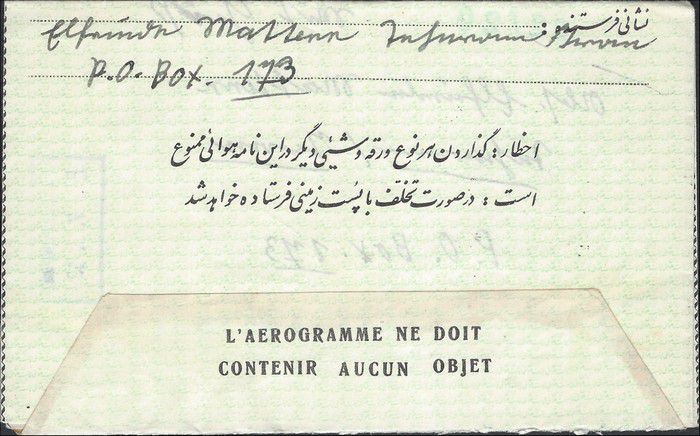 نشانی فرستنده:
Elfriede Mattern
P.O. Box 173
اخطار: گذاردن هر نوع ورقه و شیئی دیگر در این نامه هوائی ممنوع
است: در صورت تخلف با پست زمینی فرستاده خواهد شد
P.O. Box. 173
L'AEROGRAMME NE DOIT
CONTENIR AUCUN OBJET